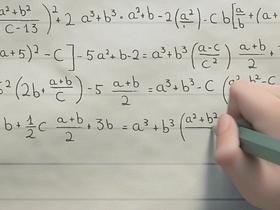 a²+b²/C-13)²+2 a³+b³·a²+b-2(a²/ )-c b[a/b+(a+
a+5)²-C]-5a²+b-2=a³+b³(a-c/c²) a+b/2
b²(2b+a+b/C)-5 a+b/2=a³+b³-C(a²b²-6
b+1/2c a+b/2+3b=a³+b³(a²+b²